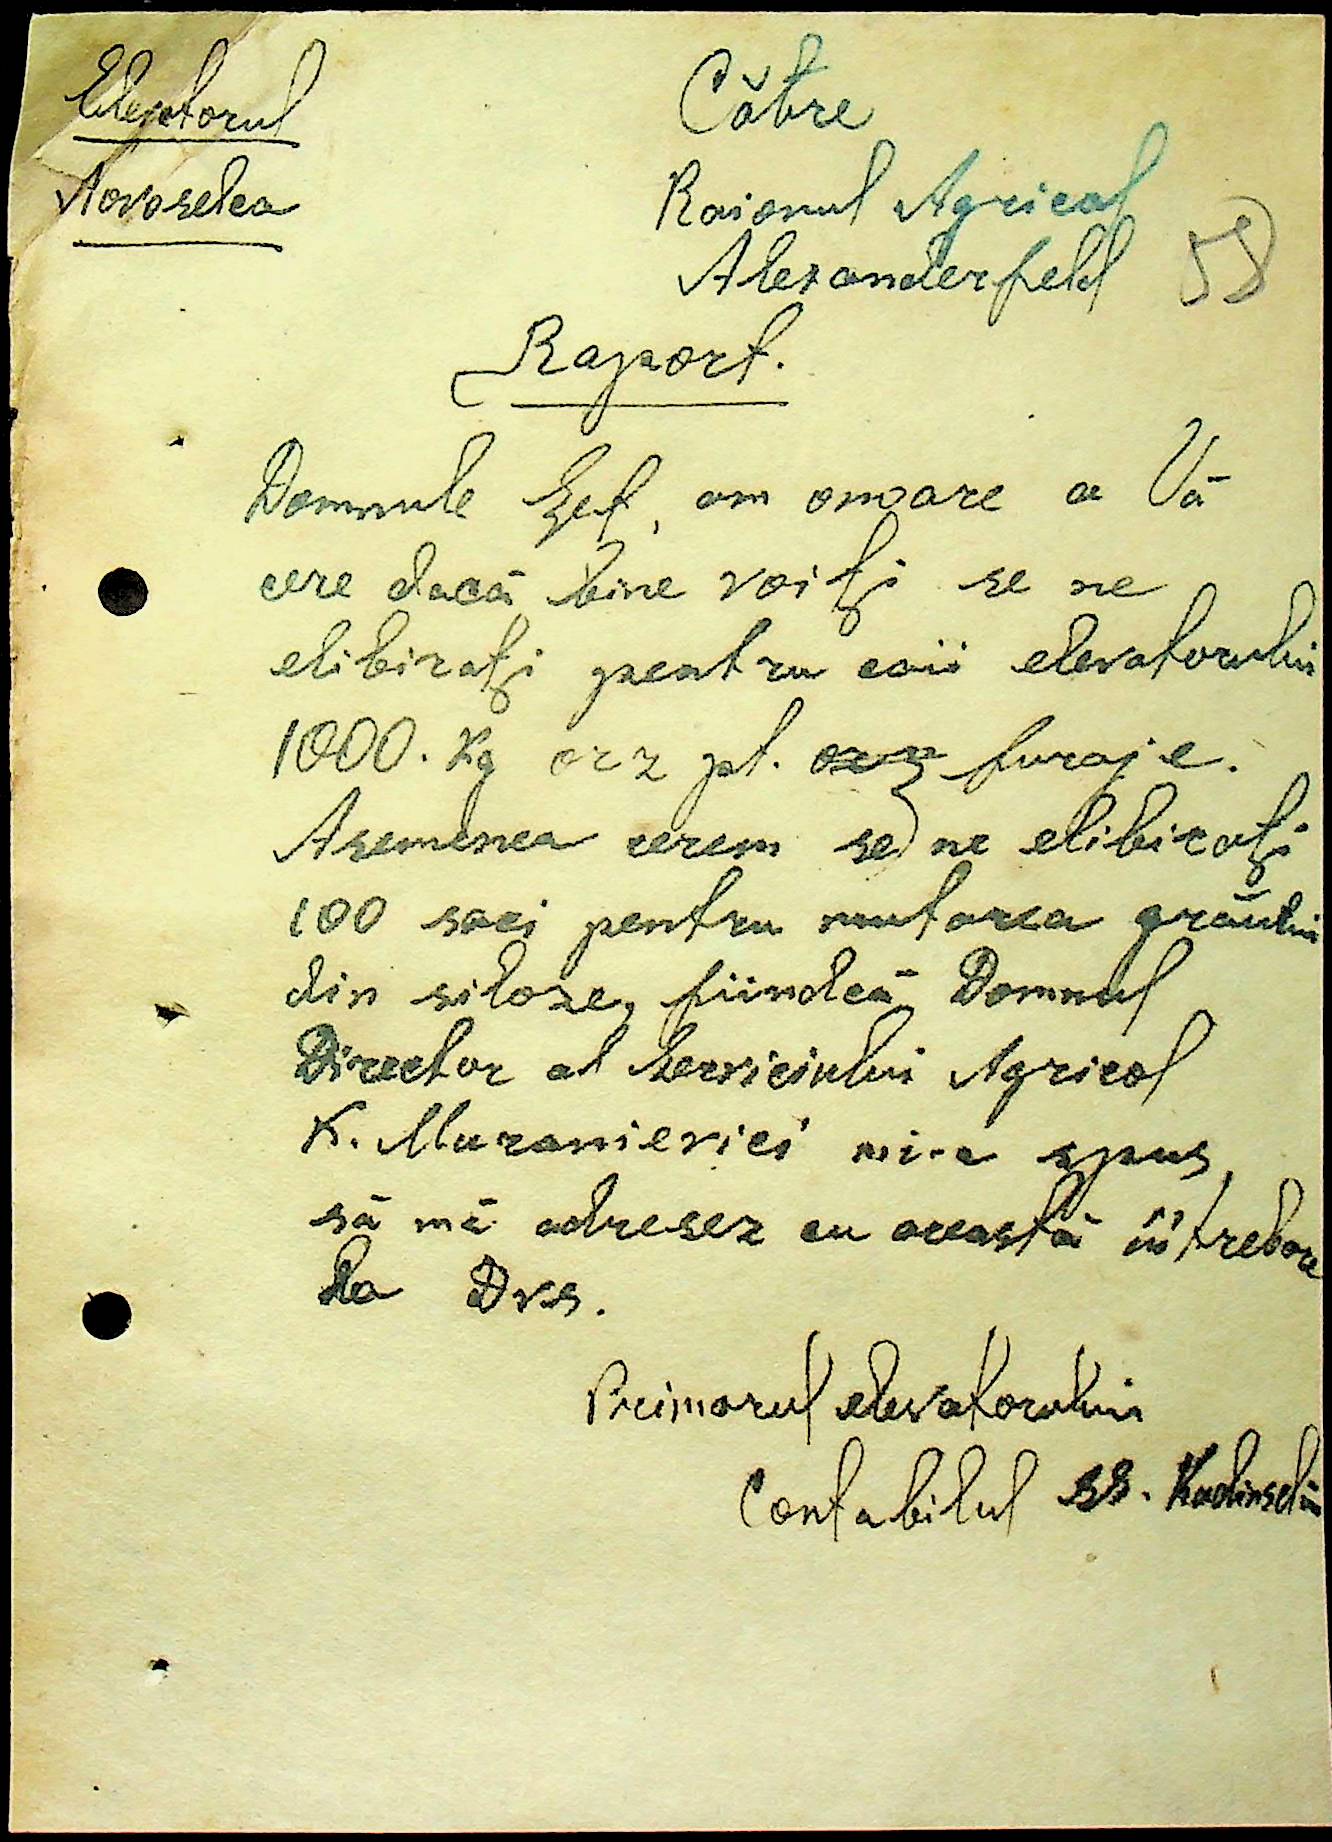 Elevatorul
Novoselca
Către
Raionul Agricol
Alexanderfeld
58
Raport.
Domnule Șef, am onoare a Vă
cere dacă bine voiţi se ne
elibiraţi pentru caii elevatorului
1000. Kg orz pt. orz furaje.
Asemenea cerem se ne elibiraţi
100 saci pentru mutarea grăului
din siloze, fiindcă Domnul
Director al Serviciului Agricol
K. Muranievici mi-a spus,
să mă adresez cu această îtrebare
la Dvs.
Primarul elevatorului
Contabilul ss.